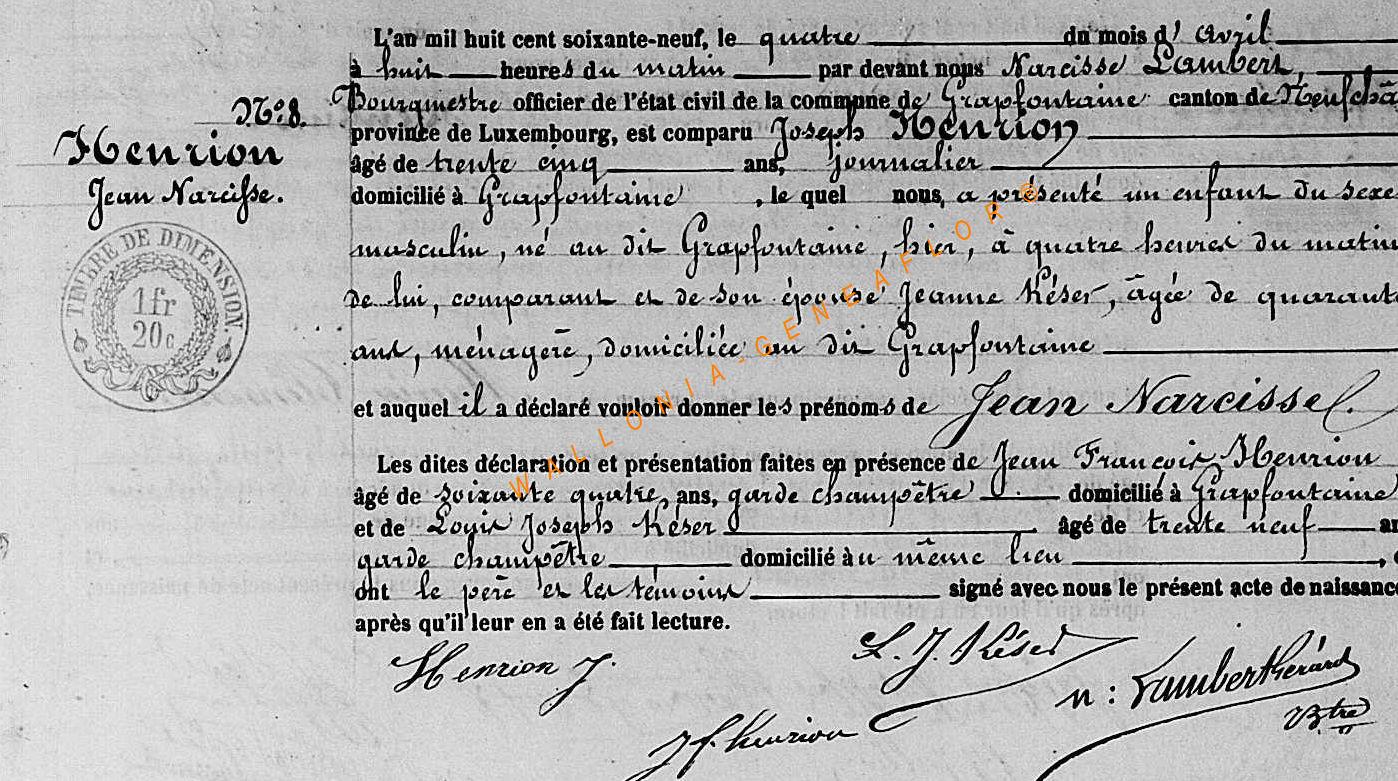 L'an mil huit cent soixante-neuf, le quatre du mois d'avril
à huit heures du matin par devant nous Narcisse Lambert,
Bourgmestre officier de l'état civil de la commune de Grapfontaine canton de Neufchâ
province de Luxembourg, est comparu Joseph Henrion
âgé de trente cinq ans, journalier
domicilié à Grapfontaine, le quel nous, a présenté un enfant du sexe
masculin, né au dit Grapfontaine, hier, à quatre heures du matin
de lui, comparant et de son épouse Jeanne Késer, âgée de quarant
ans, ménagère, domiciliée au dit Grapfontaine
et auquel il a déclaré vouloir donner les prénoms de Jean Narcisse.
Les dites déclaration et présentation faites en présence de Jean François Henrion
âgé de soixante quatre, ans, garde champêtre domicilié à Grapfontaine
et de Louis Joseph Késer âgé de trente neuf an
garde champêtre domicilié au même lieu,
ont le père et les témoins signé avec nous le présent acte de naissance
après qu'il leur en a été fait lecture.
N° 8.
Henrion
Jean Narcisse.
TIMBRE DE DIMENSION.
1 fr
20 c
WALLONIA-GENEAFLOR®
Henrion J.
L. J. Késer
J f. henrion
n : Lambert Gérard
Btre